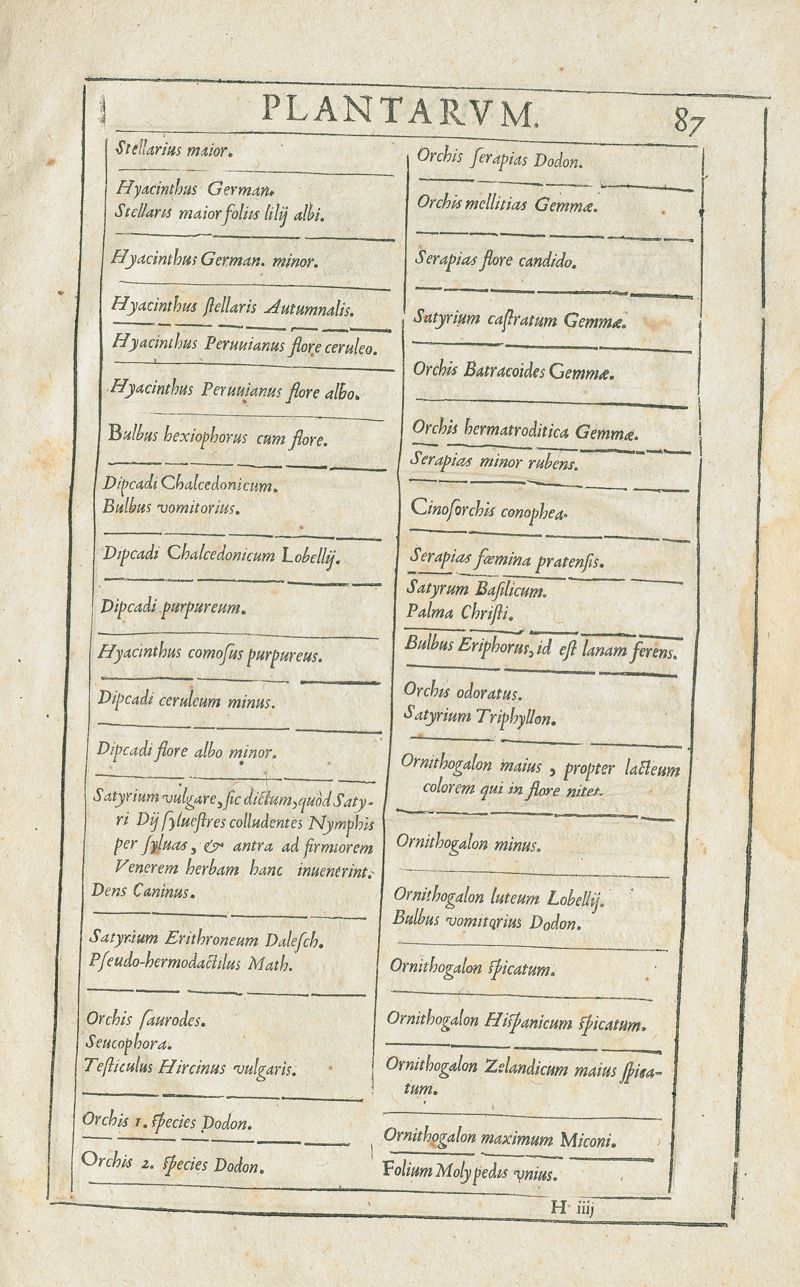 PLANTARVM.
87
Stellarius maior.
Hyacinthus German.
Stellaris maior folijs lilij albi.
Hyacinthus German. minor.
Hyacinthus ſtellaris Autumnalis.
Hyacinthus Peruuianus flore ceruleo.
Hyacinthus Peruuianus flore albo.
Bulbus hexiophorus cum flore.
Dipcadi Chalcedonicum.
Bulbus vomitorius.
Dipcadi Chalcedonicum Lobellij.
Dipcadi purpureum.
Hyacinthus comoſus purpureus.
Dipcadi ceruleum minus.
Dipcadi flore albo minor.
Satyrium vulgare, ſic dictum, quòd Saty-
ri Dij ſylueſtres colludentes Nymphis
per ſyluas, & antra ad firmiorem
Venerem herbam hanc inuenerint.
Dens Caninus.
Satyrium Erithroneum Daleſch.
Pſeudo-hermodactilus Math.
Orchis ſaurodes.
Seucophora.
Teſticulus Hircinus vulgaris.
Orchis 1. ſpecies Dodon.
Orchis 2. ſpecies Dodon.
Orchis ſerapias Dodon.
Orchis mellitias Gemmæ.
Serapias flore candido.
Satyrium caſtratum Gemmæ.
Orchis Batracoides Gemmæ.
Orchis hermatroditica Gemmæ.
Serapias minor rubens.
Cinoſorchis conophea.
Serapias fœmina pratenſis.
Satyrum Baſilicum.
Palma Chriſti.
Bulbus Eriphorus, id eſt lanam ferens.
Orchis odoratus.
Satyrium Triphyllon.
Ornithogalon maius, propter lacteum
colorem qui in flore nitet.
Ornithogalon minus.
Ornithogalon luteum Lobellij.
Bulbus vomitorius Dodon.
Ornithogalon ſpicatum.
Ornithogalon Hiſpanicum ſpicatum.
Ornithogalon Zelandicum maius ſpica-
tum.
Ornithogalon maximum Miconi.
Folium Moly pedis vnius.
H iiij